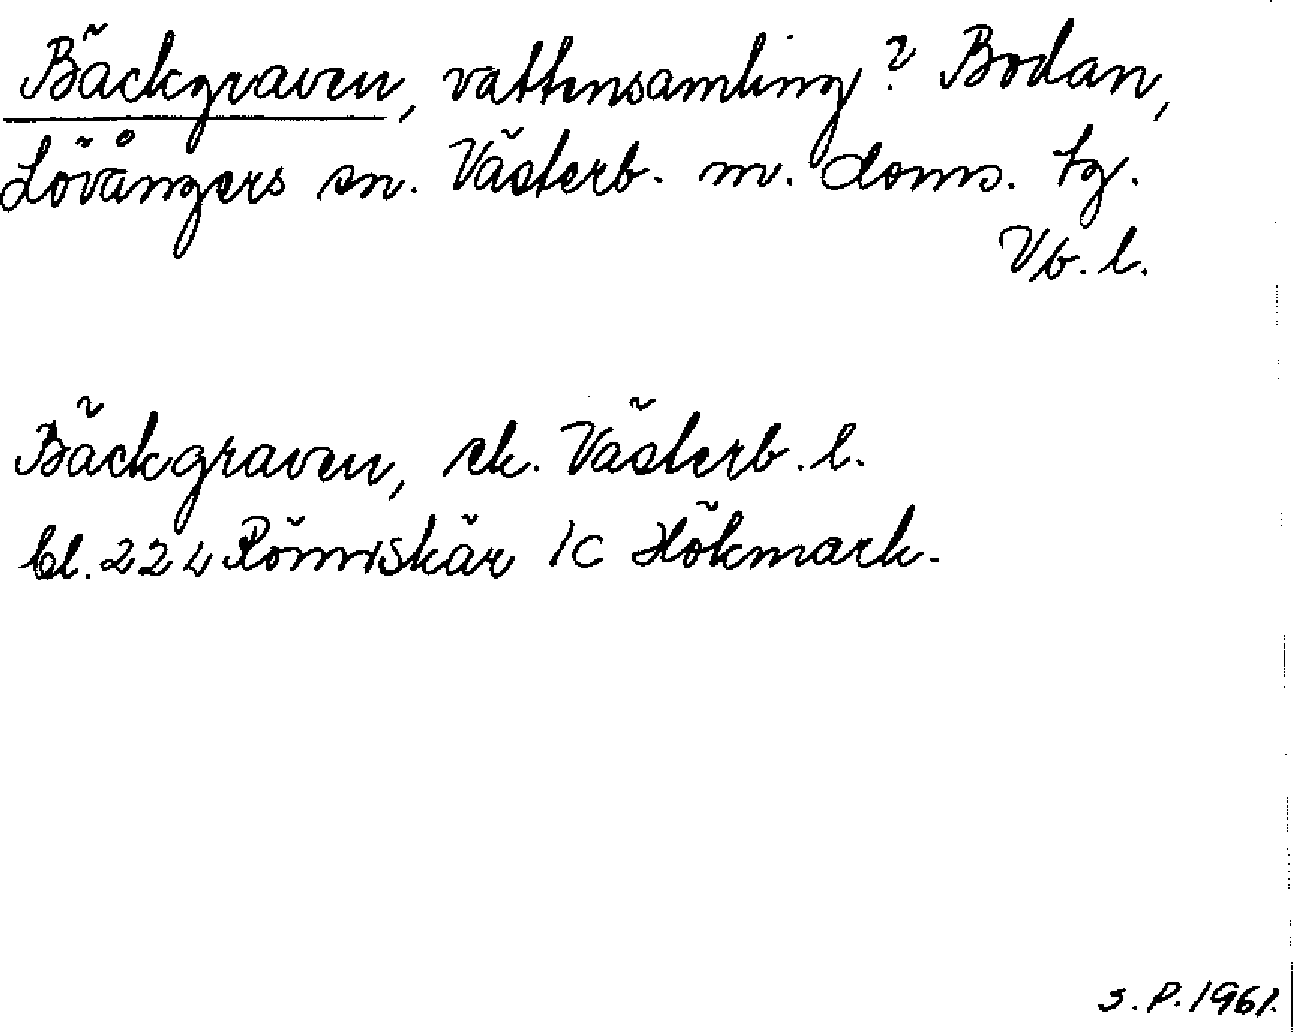 Bäckgraven, vattensamling? Bodan,
Lövångers sn. Västerb. m. doms. tg.
Vb. l.
Bäckgraven, ek. Västerb. l.
bl. 224 Römskär 1c Hökmark.
S.P. 1961.